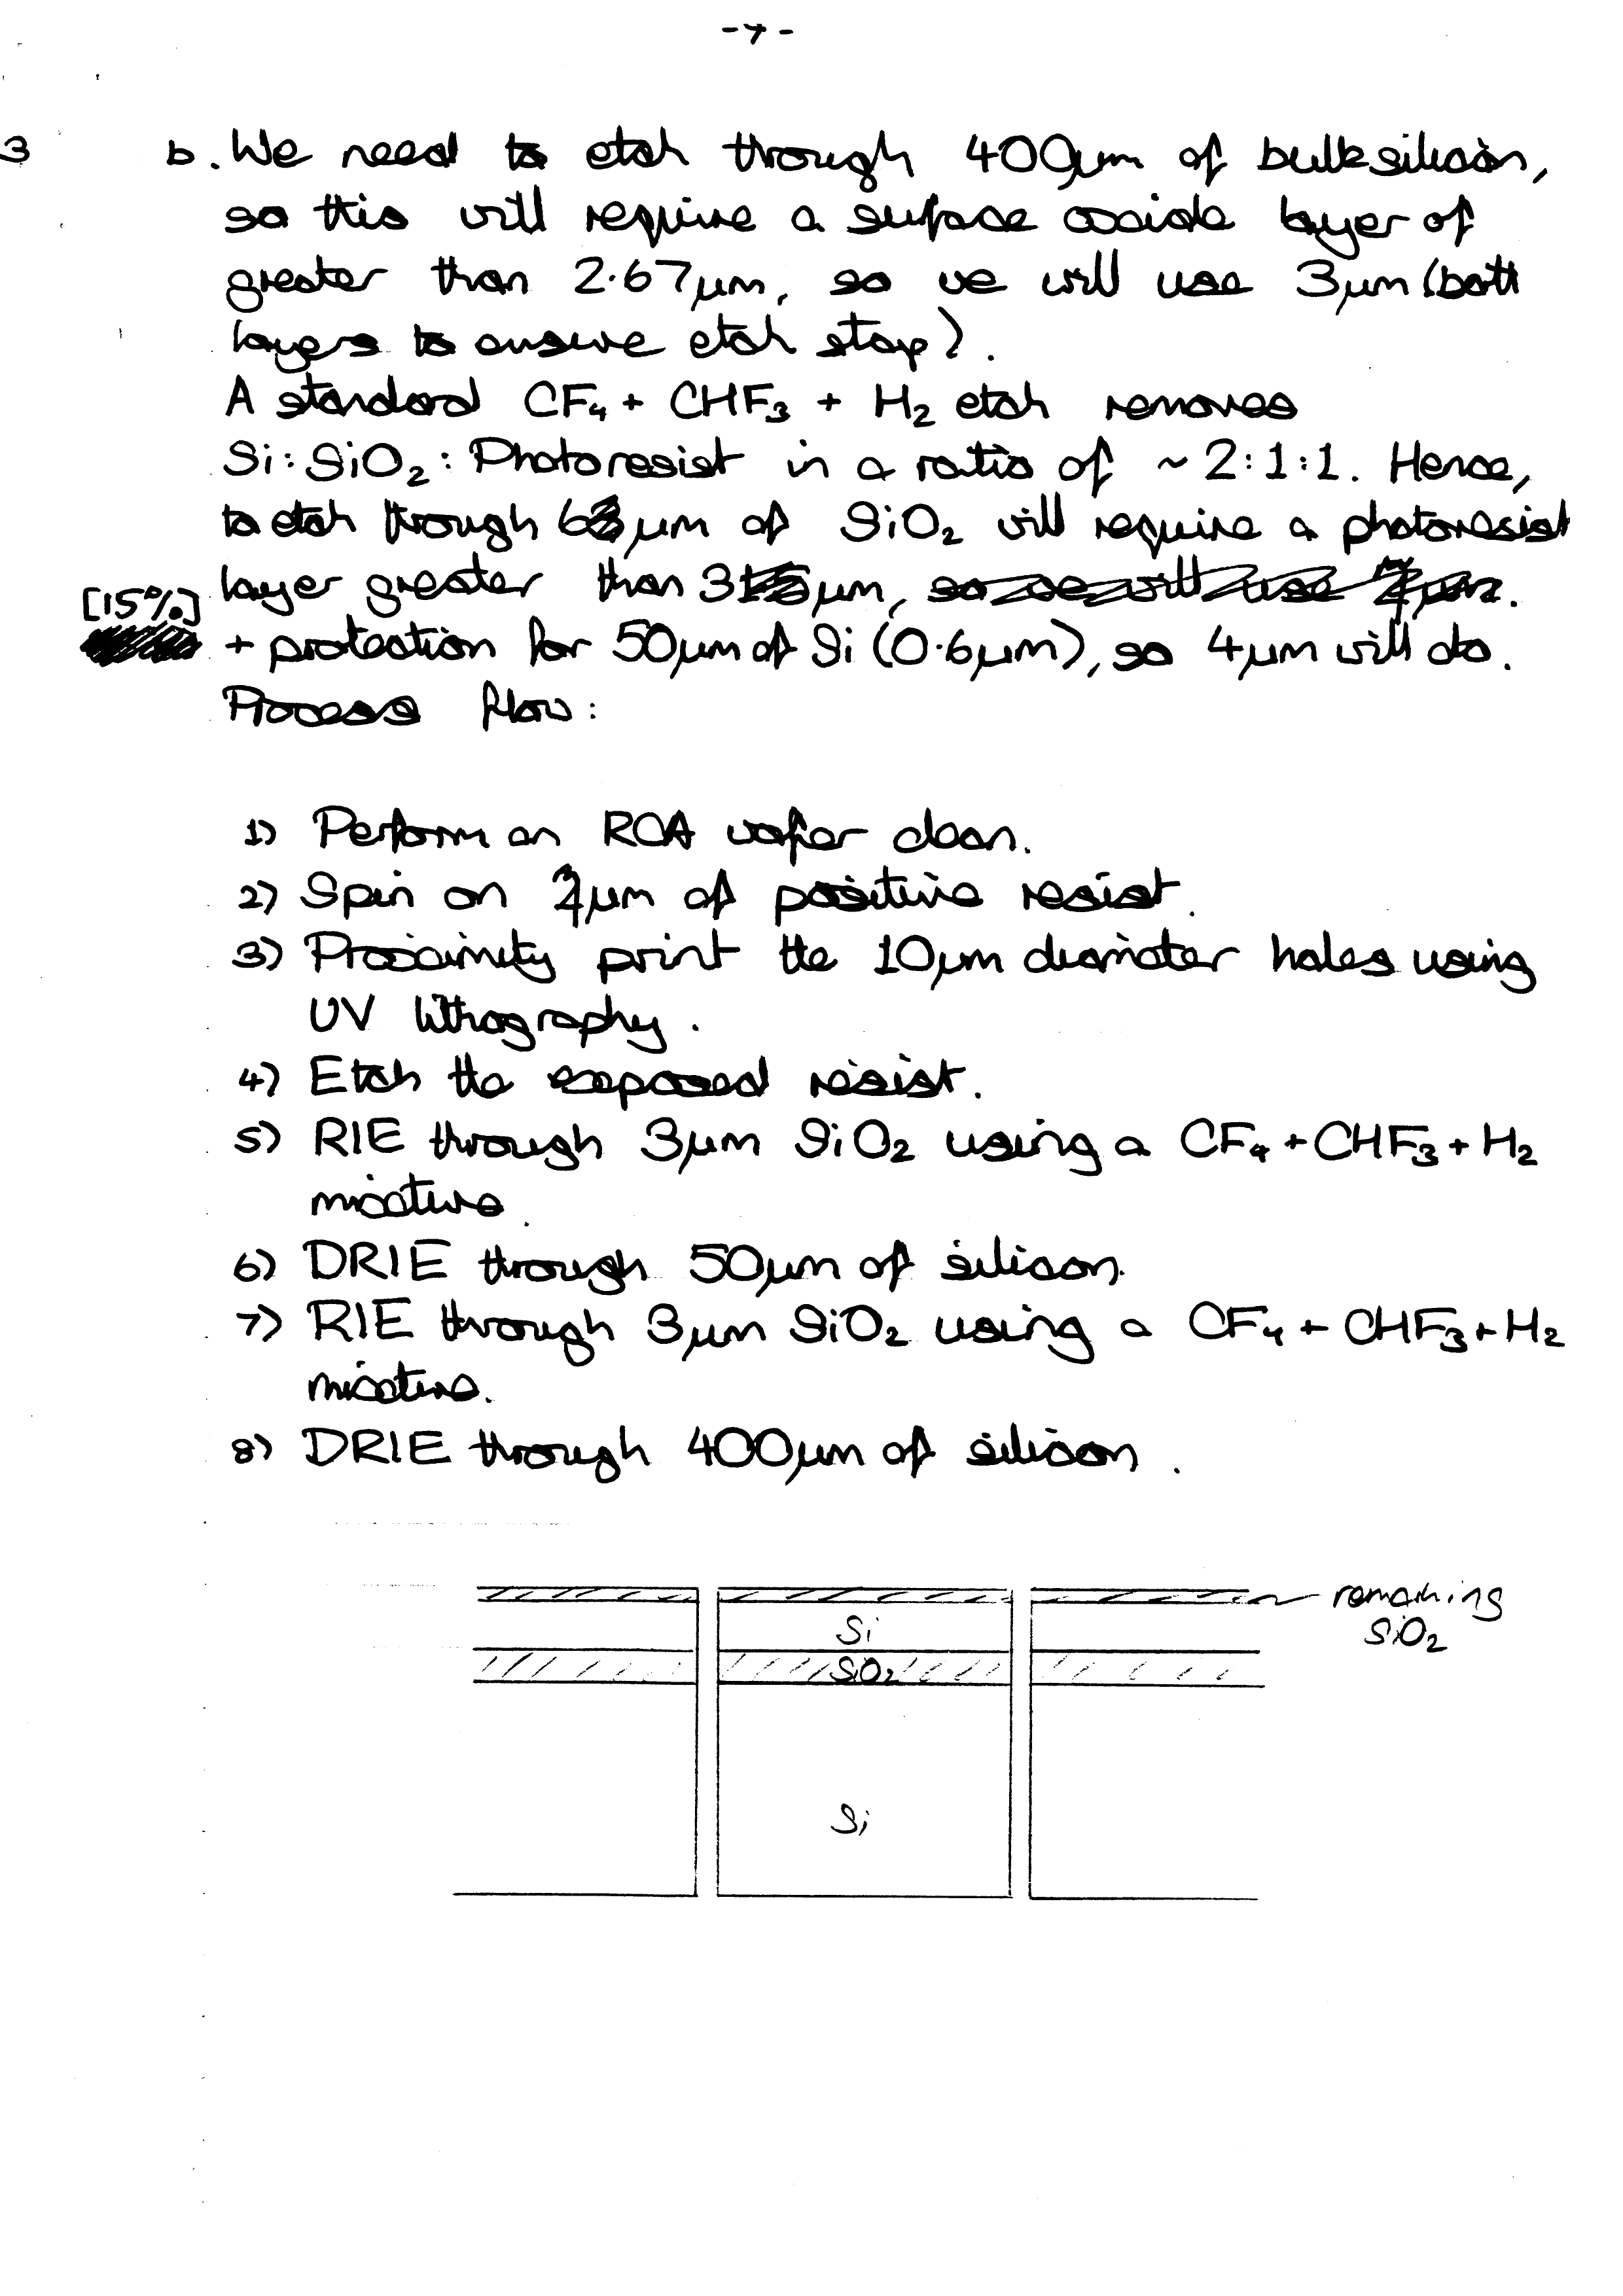 -7-
3 b. We need to etch through 400μm of bulk silicon,
so this will require a surface oxide layer of
greater than 2.67μm, so we will use 3μm (both
layers to ensure etch stop).
A standard CF₄ + CHF₃ + H₂ etch removes
Si : SiO₂ : Photoresist in a ratio of ~ 2:1:1. Hence,
to etch through 3μm of SiO₂ will require a photoresist
layer greater than 3μm,
[15%] + protection for 50μm of Si (0.6μm), so 4μm will do.
Process flow:
1) Perform an RCA wafer clean.
2) Spin on μm of positive resist.
3) Proximity print the 10μm diameter holes using
UV lithography.
4) Etch the exposed resist.
5) RIE through 3μm SiO₂ using a CF₄ + CHF₃ + H₂
mixture.
6) DRIE through 50μm of silicon.
7) RIE through 3μm SiO₂ using a CF₄ + CHF₃ + H₂
mixture.
8) DRIE through 400μm of silicon.
remaining
SiO₂
Si
SiO₂
Si